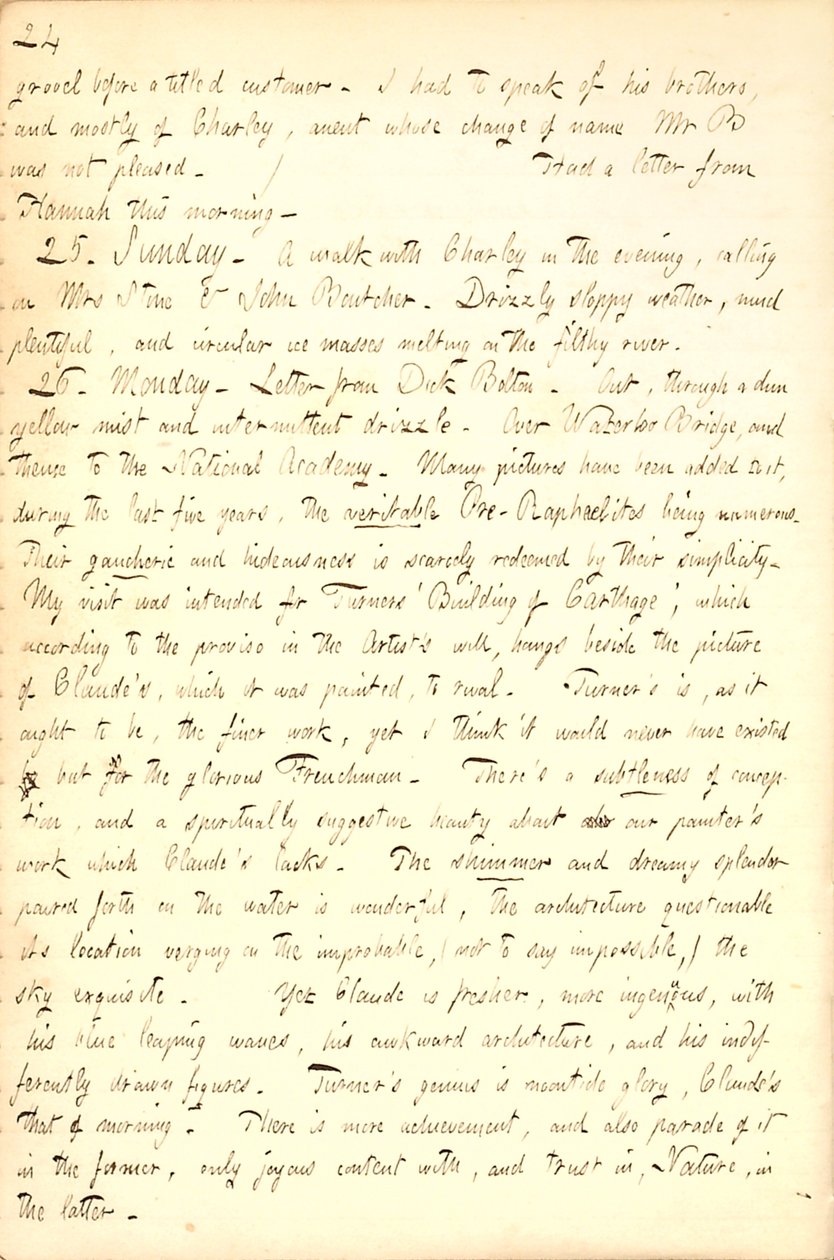 24
grovel before a titled customer - I had to speak of his brothers,
and mostly of Charley, anent whose change of name Mr B
was not pleased - ) Had a letter from
Hannah this morning -
25. Sunday - A walk with Charley in the evening, calling
on Mrs Stone & John Boutcher. Drizzly sloppy weather, mud
plentiful, and circular ice masses melting on the filthy river.
26. Monday - Letter from Dick Bolton. Out, through a dun
yellow mist and intermittent drizzle. Over Waterloo Bridge, and
thence to the National Academy. Many pictures have been added to it,
during the last five years, the veritable Pre-Raphaelites being numerous.
Their gaucherie and hideousness is scarcely redeemed by their simplicity.
My visit was intended for Turners' Building of Carthage', which
according to the proviso in the Artist's will, hangs beside the picture
of Claude's, which it was painted, to rival. Turner's is, as it
ought to be, the finer work, yet I think it would never have existed
but for the glorious Frenchman. There's a subtleness of concep-
tion, and a spiritually suggestive beauty about our painter's
work which Claude's lacks. The shimmer and dreamy splendor
poured forth on the water is wonderful, the architecture questionable
its location verging on the improbable, ( not to say impossible, ) the
sky exquisite. Yet Claude is fresher, more ingenuous, with
his blue leaping waves, his awkward architecture, and his indif-
ferently drawn figures. Turner's genius is noontide glory, Claude's
that of morning. There is more achievement, and also parade of it
in the former, only joyous content with, and trust in, Nature, in
the latter.